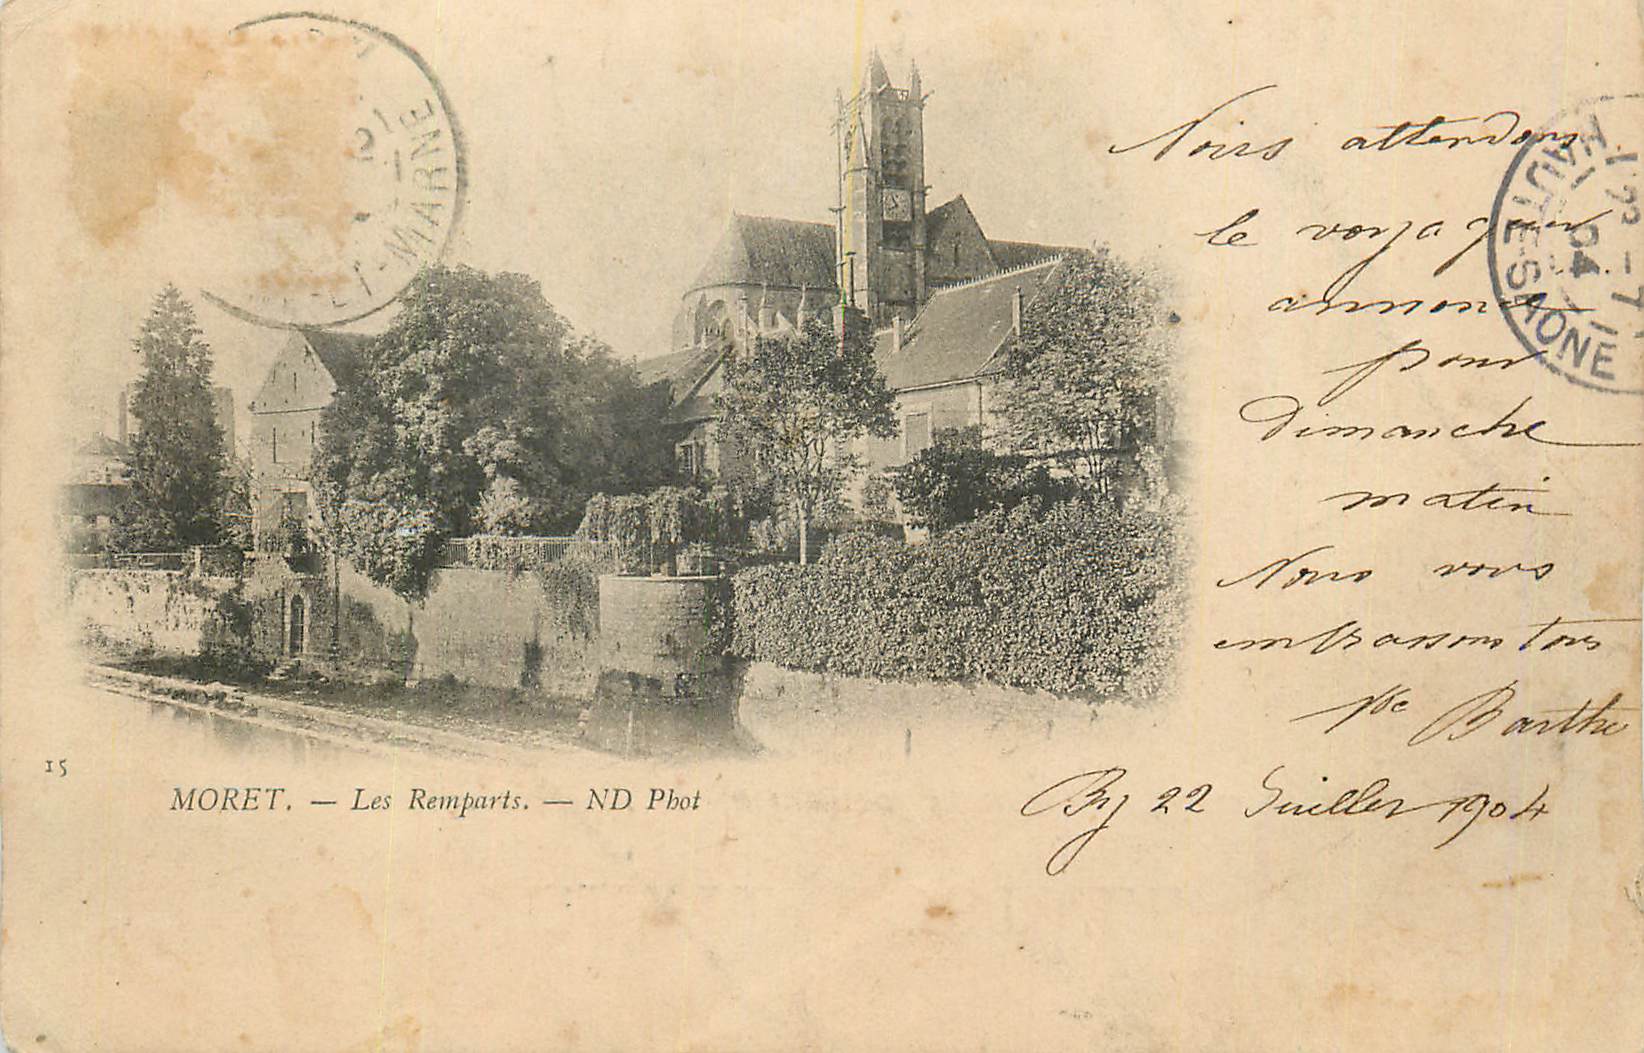 Nous attendons
le voyageur
annoncé
pour
Dimanche
matin
Nous vous
embrassons tous
Barthe
By 22 Juillet 1904
15
MORET. — Les Remparts. — ND Phot
ET-MARNE
HAUTE-SAONE
04